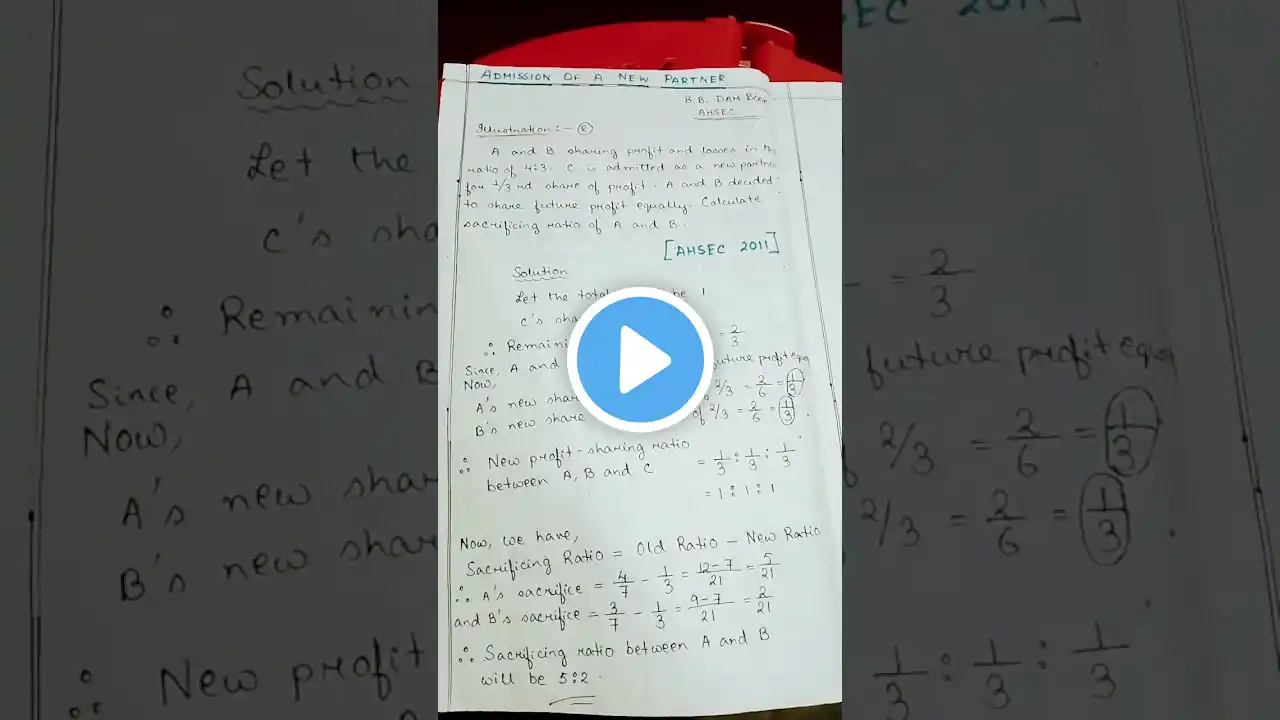 ADMISSION OF A NEW PARTNER
B.B. DAM
AHSEC
Illustration :- 8
A and B sharing profit and losses in the
ratio of 4:3. C is admitted as a new partner
for 1/3 rd share of profit. A and B decided
to share future profit equally. Calculate
sacrificing ratio of A and B.
[AHSEC 2011]
Solution
Let the total be 1
C's sha
∴ Remainin = 2/3
Since, A and future profit equa
Now,
A's new shar 2/3 = 2/6 = 1/3
B's new share of 2/3 = 2/6 = 1/3
∴ New profit-sharing ratio
between A, B and C = 1/3 : 1/3 : 1/3
= 1 : 1 : 1
Now, we have,
Sacrificing Ratio = Old Ratio - New Ratio
∴ A's sacrifice = 4/7 - 1/3 = 12-7/21 = 5/21
and B's sacrifice = 3/7 - 1/3 = 9-7/21 = 2/21
∴ Sacrificing ratio between A and B
will be 5:2.